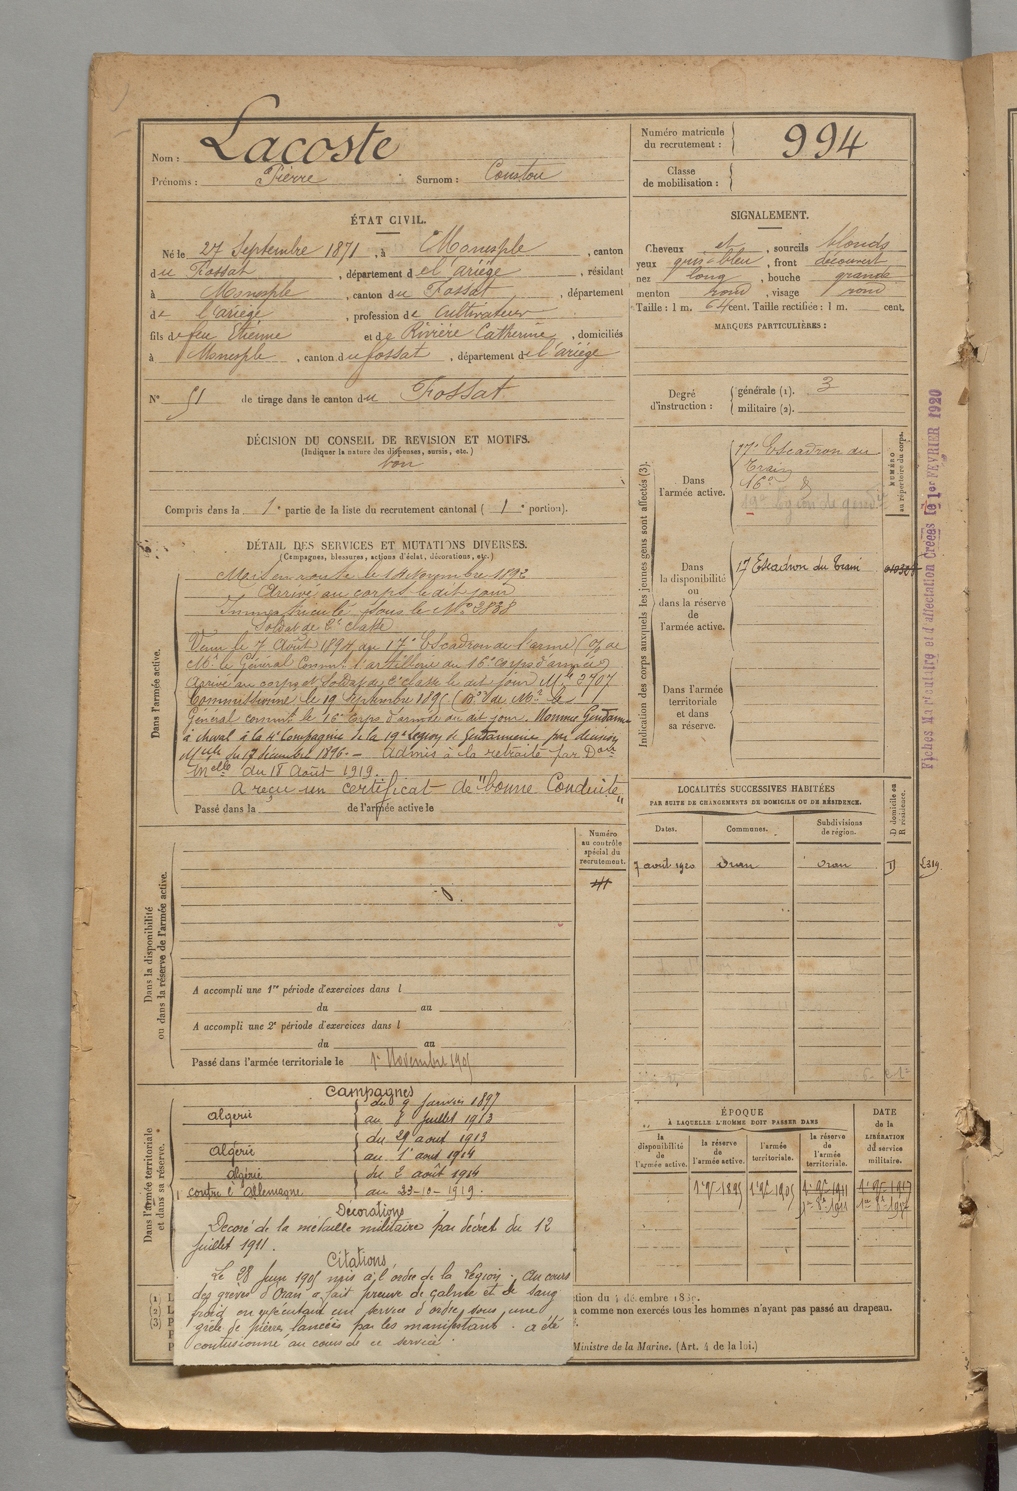 Nom : Lacoste
Prénoms : Pierre Surnom : Coustou
Numéro matricule du recrutement : 994
Classe de mobilisation :
ÉTAT CIVIL.
Né le 27 Septembre 1871, à Monesple, canton
du Fossat, département de l'ariège, résidant
à Monesple, canton du Fossat, département
de l'ariège, profession de Cultivateur
fils de feu Etienne et de Rivière Catherine, domiciliés
à Monesple, canton du fossat, département de l'ariége
N° 51 de tirage dans le canton du Fossat
SIGNALEMENT.
Cheveux et, sourcils blonds
yeux gris-bleu, front découvert
nez long, bouche grande
menton rond, visage rond
Taille : 1 m. 64 cent. Taille rectifiée : 1 m. cent.
MARQUES PARTICULIÈRES :
Degré d'instruction : générale (1). 3
militaire (2).
DÉCISION DU CONSEIL DE REVISION ET MOTIFS.
(Indiquer la nature des dispenses, sursis, etc.)
bon
Compris dans la 1e partie de la liste du recrutement cantonal ( 1e portion).
DÉTAIL DES SERVICES ET MUTATIONS DIVERSES.
(Campagnes, blessures, actions d'éclat, décorations, etc.)
Dans l'armée active.
Mis en route le 14 Novembre 1892
Arrivé au corps le dit jour
Immatriculé sous le N° 3838
Soldat de 2e classe
Venu le 7 Août 1894 au 17e Escadron de l'arme (O/ de
Mr le Général Commt l'artillerie du 16e Corps d'armée)
Arrivé au corps et soldat de 2e classe le dit jour Mle 2707
Commissionné le 19 Septembre 1895 (Don de Mr le
Général commt le 16e Corps d'armée au dit jour. Nommé Gendarme
à cheval à la 4e Compagnie de la 19e Légion de Gendarmerie par décision
Mlle du décembre 1896. - Admis à la retraite par Don
Mlle du 18 Août 1919.
A reçu un certificat de "bonne Conduite"
Passé dans la de l'armée active le
Indication des corps auxquels les jeunes gens sont affectés (3).
NUMÉRO au répertoire du corps.
Dans l'armée active.
17e Escadron du
Train
16e
19e Légion de gend
Dans la disponibilité ou dans la réserve de l'armée active.
17 Escadron du Train
Dans l'armée territoriale et dans sa réserve.
Fiches Matriculaire et d'affectation Créées le 1er FÉVRIER 1920
Dans la disponibilité ou dans la réserve de l'armée active.
Numéro au contrôle spécial du recrutement.
A accompli une 1re période d'exercices dans l
du au
A accompli une 2e période d'exercices dans l
du au
Passé dans l'armée territoriale le 1er Novembre 1905
LOCALITÉS SUCCESSIVES HABITÉES
PAR SUITE DE CHANGEMENTS DE DOMICILE OU DE RÉSIDENCE.
Dates. Communes. Subdivisions de région. D domicile ou R résidence.
7 avout 1920 Oran Oran D £319
Dans l'armée territoriale et dans sa réserve.
Campagnes
algerie du 9 janvier 1897
au 8 juillet 1913
algérie du 29 aout 1913
au 1er aout 1914
algérie du 2 août 1914
contre l'Allemagne au 23-10-1919.
Décorations
Decoré de la médaille militaire par décret du 12
juillet 1911.
Citations
Le 28 Juin 1905 mis à l'ordre de la Légion. Au cours
des grèves d'Oran a fait preuve de calme et de sang
froid en exécutant un service d'ordre, sous une
grêle de pierres lancées par les manifestants. a été
contusionné au cours de ce service.
ÉPOQUE
À LAQUELLE L'HOMME DOIT PASSER DANS
la disponibilité de l'armée active.
la réserve de l'armée active.
l'armée territoriale.
la réserve de l'armée territoriale.
DATE de la LIBÉRATION du service militaire.
1er 9bre 1895 1er 9bre 1905 1er 9bre 1911 1er 9bre 1917
ction du 4 décembre 1889.
a comme non exercés tous les hommes n'ayant pas passé au drapeau.
Ministre de la Marine. (Art. 4 de la loi.)